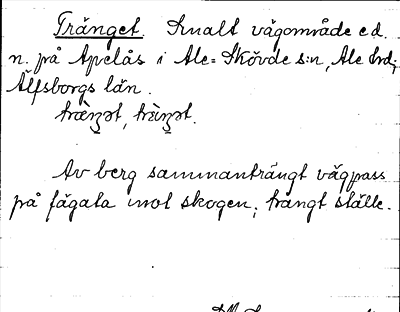 Tränget. Smalt vägområde e.d.
n. på Apelås i Ale-Skövde s:n, Ale hrd;
Älfsborgs län.
Av berg sammanträngt vägpass
på fägata mot skogen; trångt ställe.